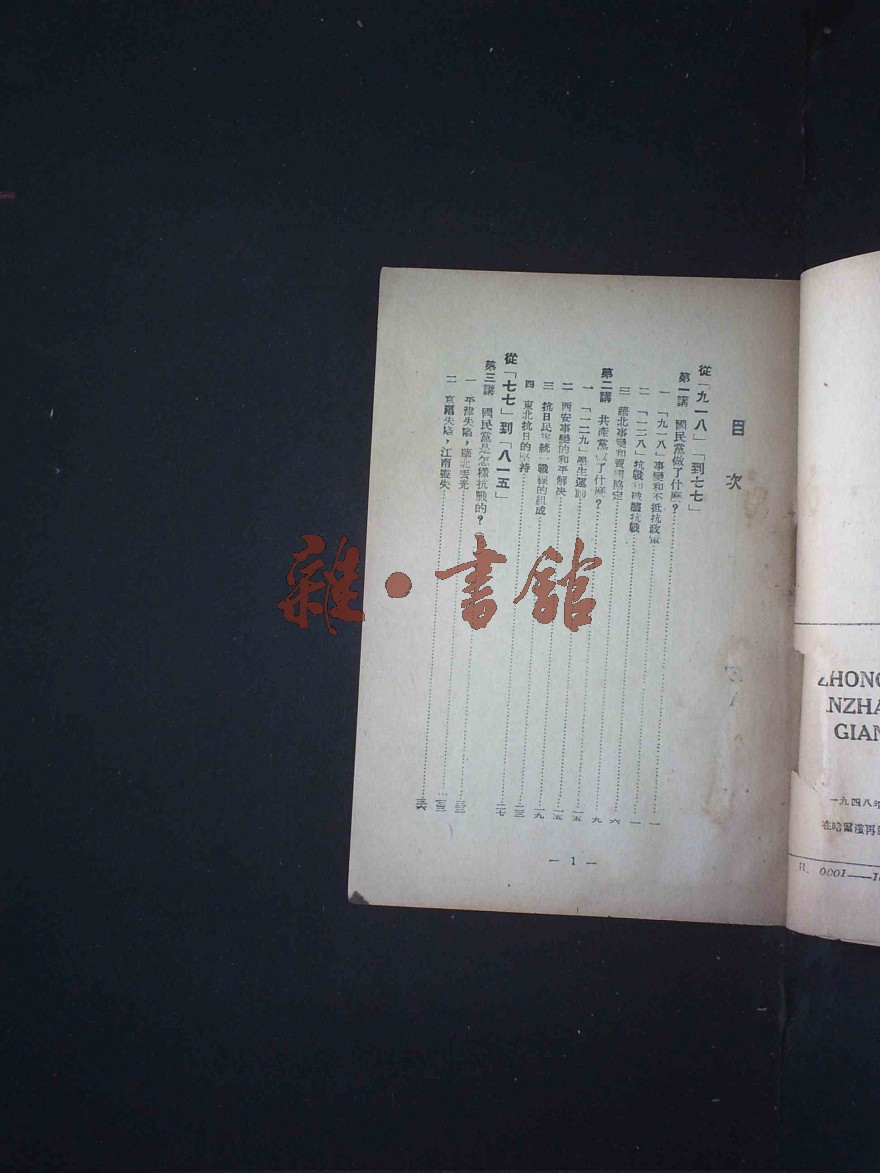 目次
從「九一八」「到七七」
第一講 國民黨做了什麼？
一 「九一八」事變和不抵抗政策……一
二 「一二八」抗戰和破壞抗戰……一
三 華北事變和賣國協定……六
第二講 共產黨做了什麼？……九
一 「一二九」學生運動……一五
二 西安事變的和平解決……一五
三 抗日民族統一戰線的組成……一九
四 東北抗日的堅持……二三
從「七七」到「八一五」……二七
第三講 國民黨是怎樣抗戰的？
一 平津失陷，華北丟光……三三
二 京滬失陷，江南喪失……三六
— 1 —
ZHONG
NZHA
GIAN
一九四八年
在哈爾濱再
II. 0001——1
雜·書館